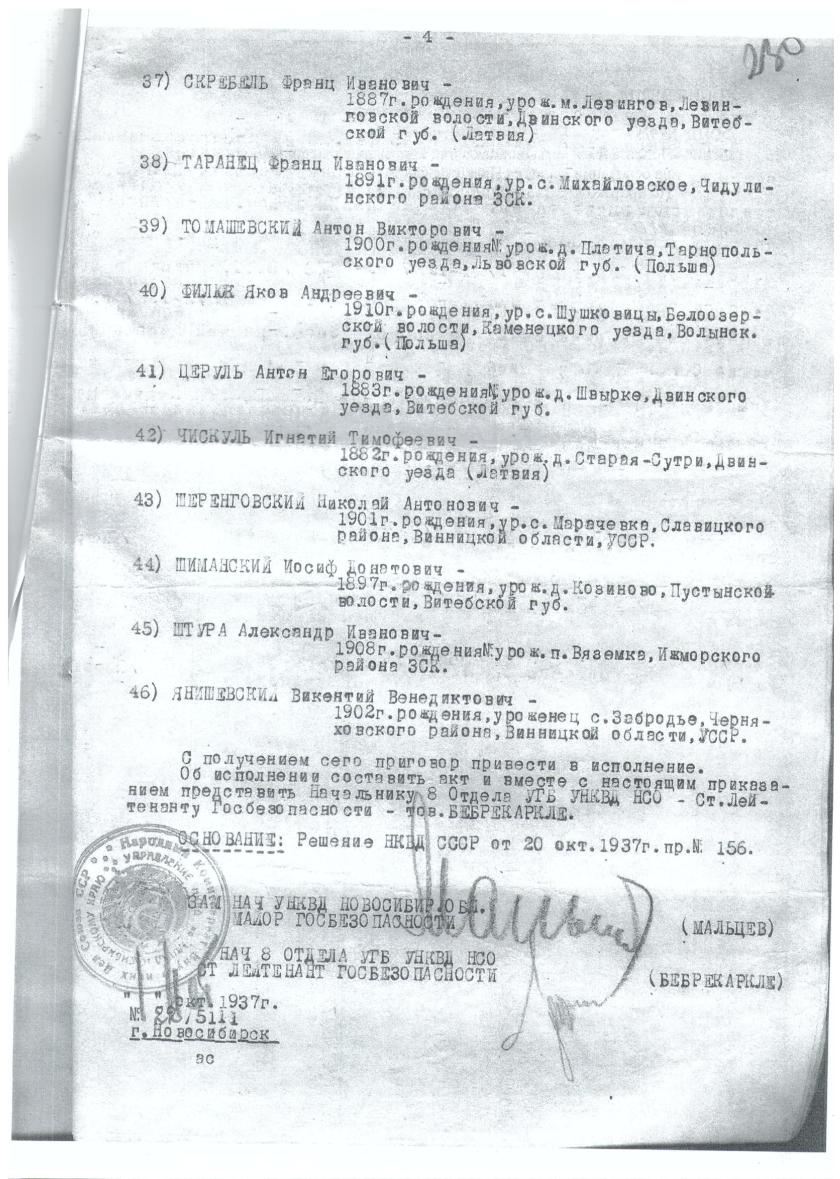 - 4 -
230
37) СКРЕБЕЛЬ Франц Иванович -
1887г.рождения,урож.м.Левингов,Левин-
говской волости,Двинского уезда,Витеб-
ской губ. (Латвия)
38) ТАРАНЕЦ Франц Иванович -
1891г.рождения,ур.с.Михайловское,Чидули-
нского района ЗСК.
39) ТОМАШЕВСКИЙ Антон Викторович -
1900г.рождения№урож.д.Платича,Тарнополь-
ского уезда,Львовской губ. (Польша)
40) ФИЛЯК Яков Андреевич -
1910г.рождения,ур.с.Шушковицы,Белоозер-
ской волости,Каменецкого уезда,Волынск.
губ.(Польша)
41) ЦЕРУЛЬ Антон Егорович -
1883г.рождения№урож.д.Швырке,Двинского
уезда,Витебской губ.
42) ЧИСКУЛЬ Игнатий Тимофеевич -
1882г.рождения,урож.д.Старая-Сутри,Двин-
ского уезда (Латвия)
43) ШЕРЕНГОВСКИЙ Николай Антонович -
1901г.рождения,ур.с.Марачевка,Славицкого
района,Винницкой области,УССР.
44) ШИМАНСКИЙ Иосиф Донатович -
1897г.рождения,урож.д.Козиново,Пустынской
волости,Витебской губ.
45) ШТУРА Александр Иванович-
1908г.рождения№урож.п.Вяземка,Ижморского
района ЗСК.
46) ЯНИШЕВСКИЙ Викентий Венедиктович -
1902г.рождения,уроженец с.Забродье,Черня-
ховского района,Винницкой области,УССР.
С получением сего приговор привести в исполнение.
Об исполнении составить акт и вместе с настоящим приказа-
нием представить Начальнику 8 Отдела УГБ УНКВД НСО - Ст.Лей-
тенанту Госбезопасности - тов.БЕБРЕКАРКЛЕ.
ОСНОВАНИЕ: Решение НКВД СССР от 20 окт.1937г.пр.№ 156.
ЗАМ НАЧ УНКВД НОВОСИБИР.ОБЛ.
МАЙОР ГОСБЕЗОПАСНОСТИ
(МАЛЬЦЕВ)
НАЧ 8 ОТДЕЛА УГБ УНКВД НСО
СТ ЛЕЙТЕНАНТ ГОСБЕЗОПАСНОСТИ
(БЕБРЕКАРКЛЕ)
" " окт.1937г.
№ 28/5111
г.Новосибирск
ас